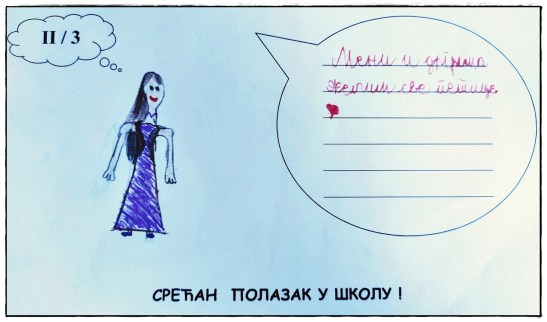 II / 3
Мени и другима
желим све петице
СРЕЋАН ПОЛАЗАК У ШКОЛУ !